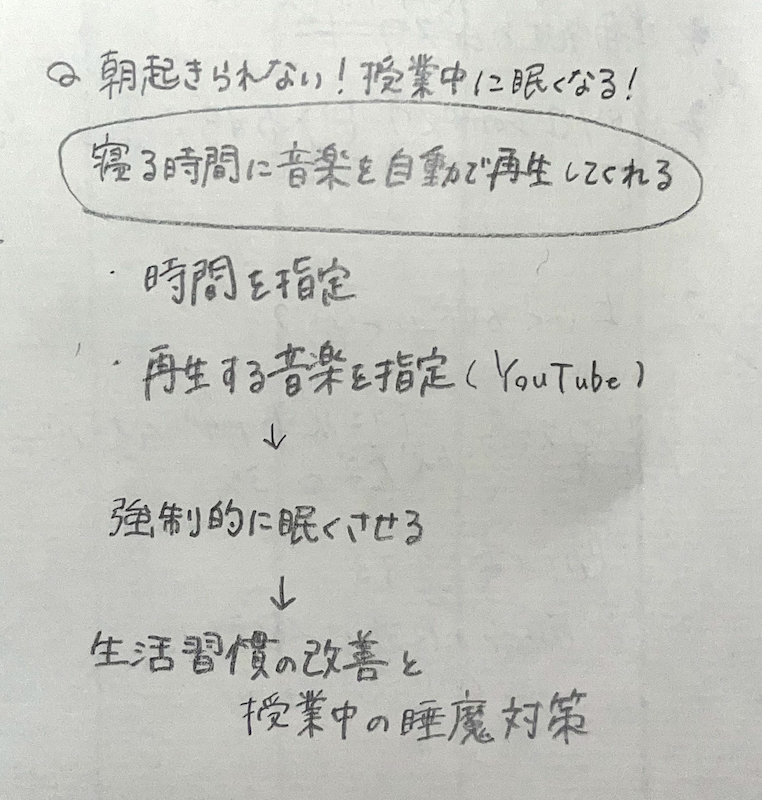 Q 朝起きられない！授業中に眠くなる！
寝る時間に音楽を自動で再生してくれる
・時間を指定
・再生する音楽を指定（YouTube）
↓
強制的に眠くさせる
↓
生活習慣の改善と
授業中の睡魔対策